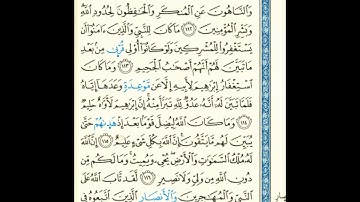 وَالنَّاهُونَ عَنِ الْمُنكَرِ وَالْحَافِظُونَ لِحُدُودِ اللَّهِ
وَبَشِّرِ الْمُؤْمِنِينَ ١١٢ مَا كَانَ لِلنَّبِيِّ وَالَّذِينَ آمَنُوا أَن
يَسْتَغْفِرُوا لِلْمُشْرِكِينَ وَلَوْ كَانُوا أُولِي قُرْبَى مِن بَعْدِ
مَا تَبَيَّنَ لَهُمْ أَنَّهُمْ أَصْحَابُ الْجَحِيمِ ١١٣ وَمَا كَانَ
اسْتِغْفَارُ إِبْرَاهِيمَ لِأَبِيهِ إِلَّا عَن مَّوْعِدَةٍ وَعَدَهَا إِيَّاهُ
فَلَمَّا تَبَيَّنَ لَهُ أَنَّهُ عَدُوٌّ لِّلَّهِ تَبَرَّأَ مِنْهُ إِنَّ إِبْرَاهِيمَ لَأَوَّاهٌ حَلِيمٌ
١١٤ وَمَا كَانَ اللَّهُ لِيُضِلَّ قَوْمًا بَعْدَ إِذْ هَدَاهُمْ حَتَّى
يُبَيِّنَ لَهُم مَّا يَتَّقُونَ إِنَّ اللَّهَ بِكُلِّ شَيْءٍ عَلِيمٌ ١١٥ إِنَّ اللَّهَ
لَهُ مُلْكُ السَّمَاوَاتِ وَالْأَرْضِ يُحْيِي وَيُمِيتُ وَمَا لَكُم مِّن
دُونِ اللَّهِ مِن وَلِيٍّ وَلَا نَصِيرٍ ١١٦ لَّقَد تَّابَ اللَّهُ عَلَى
النَّبِيِّ وَالْمُهَاجِرِينَ وَالْأَنصَارِ الَّذِينَ اتَّبَعُوهُ فِي